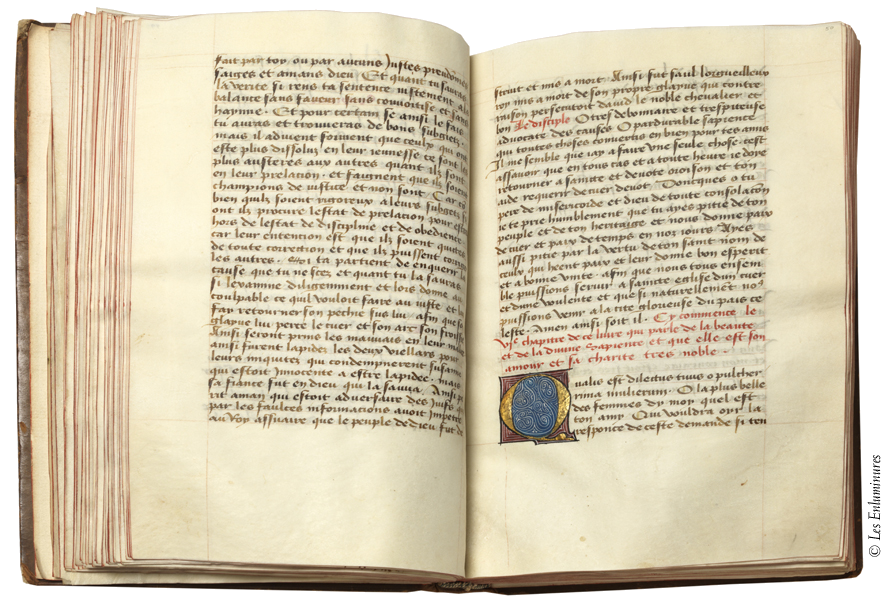 fait par toy, ou par aucuns Justes preudômes
saiges et amans dieu. Et quant tu sauras
la verite si rens ta sentence justement a la
balance sans faveur sans couvoitise et sans
hayne. Et pour certain se ainsi le fais
tu auras et trouveras de bons subgetz
mais il advient souvent que ceulx qui ont
este plus dissoluz en leur jeunesse ce sont les
plus austeres aux autres quant ilz sont
en leur prelation. et faignent que ilz soient
champions de justice et non sont. Car
bien quilz soient rigoreux a leurs subgetz
ont ilz procure lestat de prelation pour
hors de lestat de discipline et de obedience
car leur entention est que ilz soient quites
de toute correction et que ilz puissent
les autres. Si ta partient de enquerir la
cause que tu ne scez et quant tu la sauras
si lexamine diligemment et lors donne au
coulpable ce quil vouloit faire au juste et
fay retourner son pechie sus luy. afin que son
glayve luy perce le cuer et son arc son
Ainsi seront prins les mauvais en leur malice
ainsi furent lapidez les deux viellars pour
leurs iniquitez qui condempnerent susanne
qui estoit innocente a estre lapidee. mais
sa fiance fut en dieu qui la sauva. Ainsi
rit aman qui estoit adversaire des Juifs
par les faulces informations avoit impetre
au roy assuaire que le peuple de dieu fut de
struit et mis a mort. Ainsi fut saul lorgueilleux
roy mis a mort de son propre glayve qui contre
raison persecutoit david le noble chevalier et
bon Le disciple O tres debonnaire et trespiteuse
advocate des causes O pardurable sapience
qui toutes choses convertis en bien pour tes amis
Il me semble que jay a faire une seule chose. cest
assavoir que en tous cas et a toute heure je doye
retourner a saincte et devote oroison et ton
aide requerir de cuer devot. Doncques o tu
pere de misericorde et dieu de toute consolacôn
je te prie humblement que tu ayes pitie de ton
peuple et de ton heritaige et nous donne paix
de cuer et paix de temps en nos jours. Ayes
aussi pitie par la vertu de ton saint nom de
ceulx qui heent paix et leur donne bon esperit
et a bonne unite. afin que nous tous ensem
ble puissions servir a saincte eglise dun cuer
et dune voulente et que si naturellemêt nos
puissions venir a la cite glorieuse du pais ce
leste. Amen ainsi soit il. Cy commence le
vi^e chapitre de ce livre qui parle de la beaute
et de la divine Sapience et que elle est son
amour et sa charite tres noble.
Qualis est dilectus tuus o pulcher
rima mulierum. O la plus belle
des femmes dy moy quel est
ton amy. Qui vouldra oyr la
responce de ceste demande si ten
© Les Enluminures